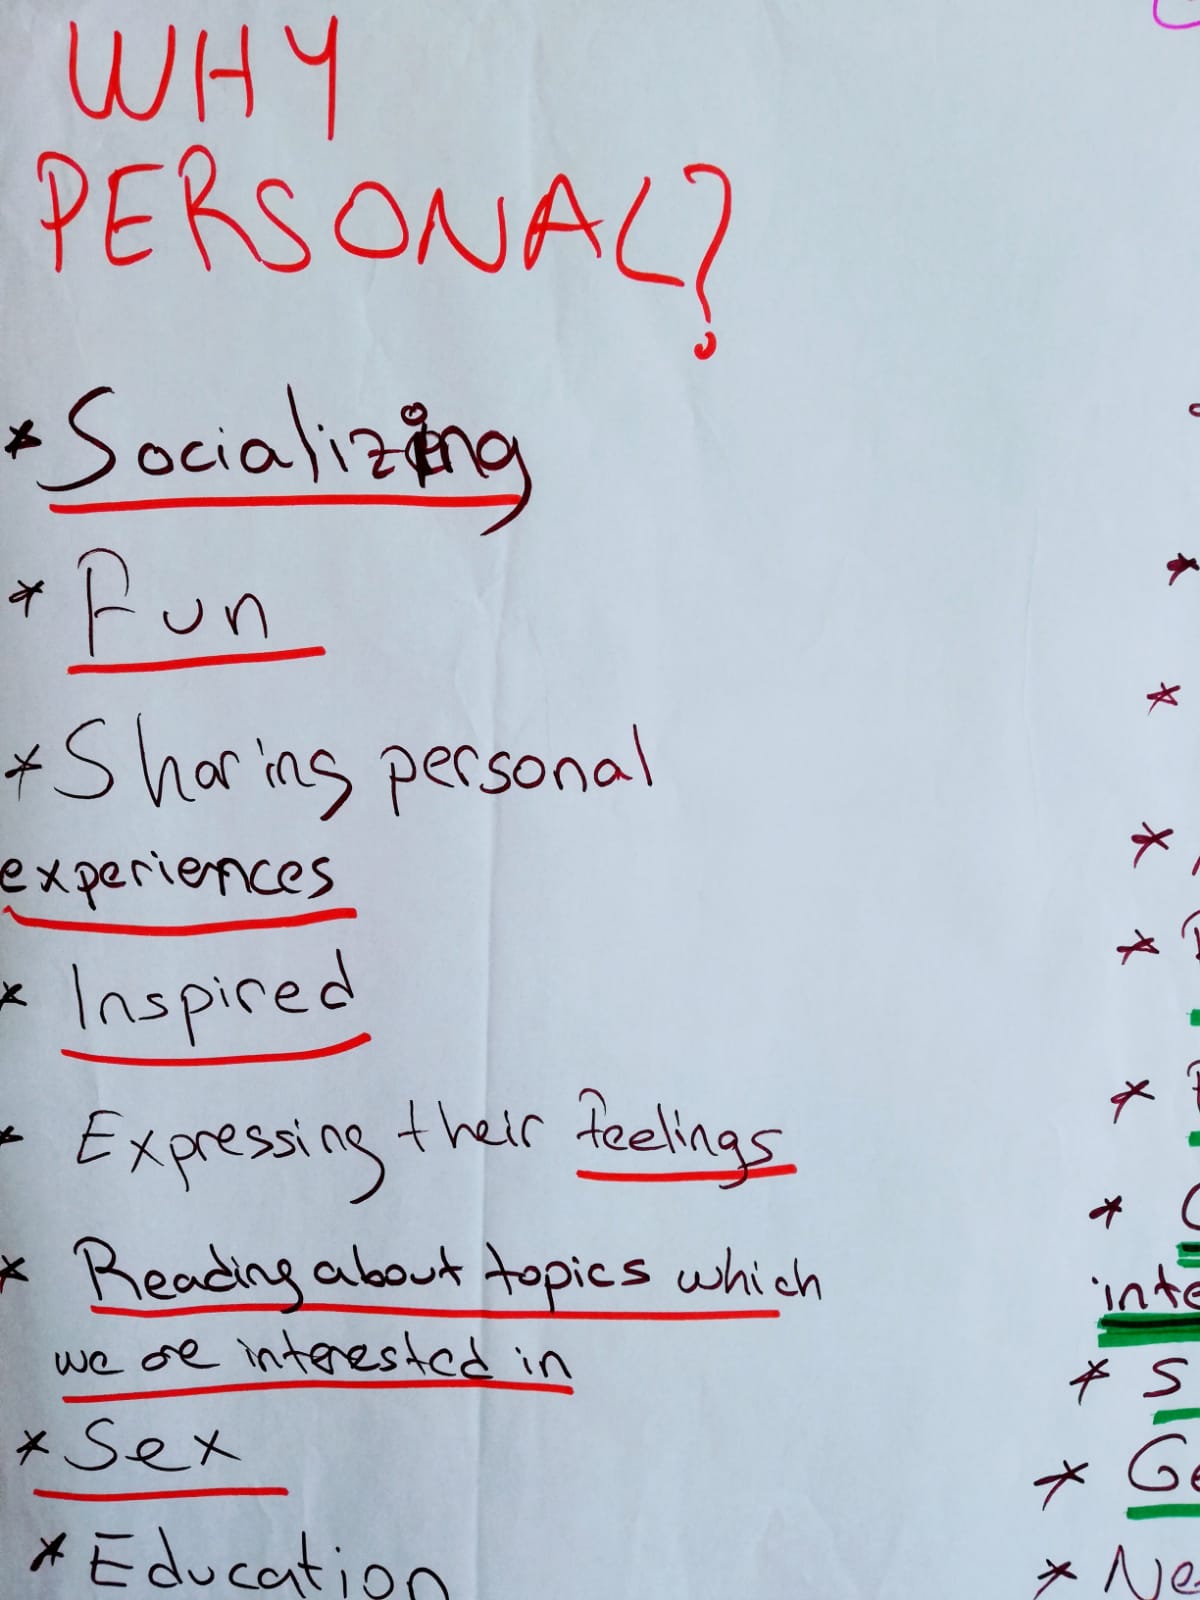 WHY
PERSONAL?
* Socializing
* Fun
* Sharing personal
experiences
* Inspired
* Expressing their feelings
* Reading about topics which
we are interested in
* Sex
* Education